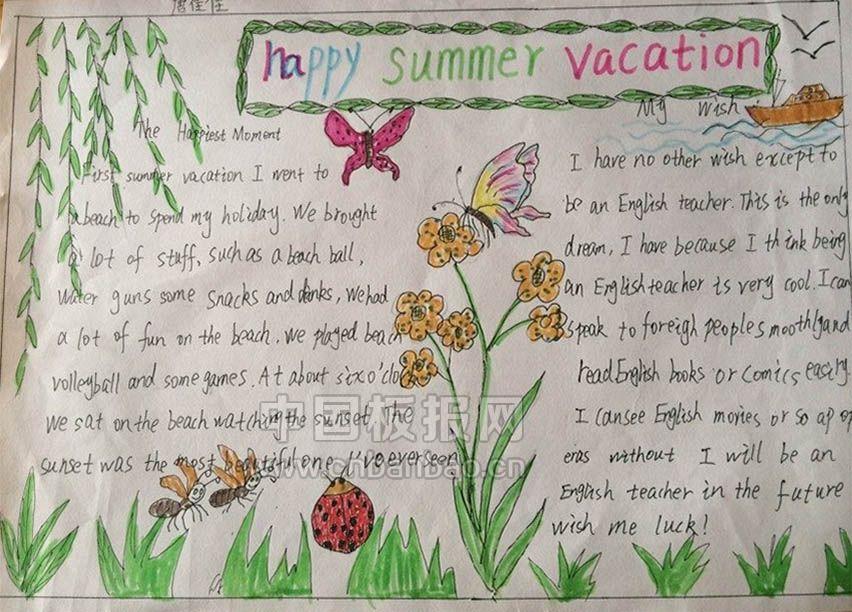 唐佳佳
happy summer vacation
The Happiest Moment
First summer vacation I went to
a beach to spend my holiday. We brought
a lot of stuff, such as a beach ball,
water guns some snacks and drinks, We had
a lot of fun on the beach. We played beach
volleyball and some games. At about six o'clo
we sat on the beach watching the sunset. The
sunset was the most beautiful one I've ever seen
My Wish
I have no other wish except to
be an English teacher. This is the only
dream, I have because I think being
an English teacher is very cool. I can
speak to foreigh people smoothly and
read English books or comics easily.
I can see English movies or soap op
eras without I will be an
English teacher in the future
wish me luck!
中国板报网
www.cnbanbao.cn